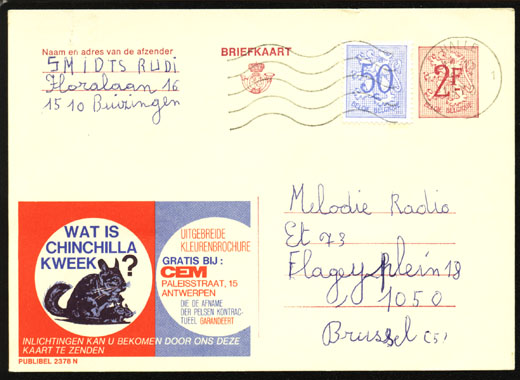 Naam en adres van de afzender
SMIDTS RUDI
Floralaan 16
1510 Buizingen
BRIEFKAART
50 c
BELGIE BELGIQUE
2F
BELGIE-BELGIQUE
HALLE
1
Melodie Radio
Et 73
Flageyplein 18
1050
Brussel (5)
WAT IS
CHINCHILLA
KWEEK ?
UITGEBREIDE
KLEURENBROCHURE
GRATIS BIJ :
CEM
PALEISSTRAAT, 15
ANTWERPEN
DIE DE AFNAME
DER PELSEN KONTRAC-
TUEEL GARANDEERT
INLICHTINGEN KAN U BEKOMEN DOOR ONS DEZE
KAART TE ZENDEN
PUBLIBEL 2378 N